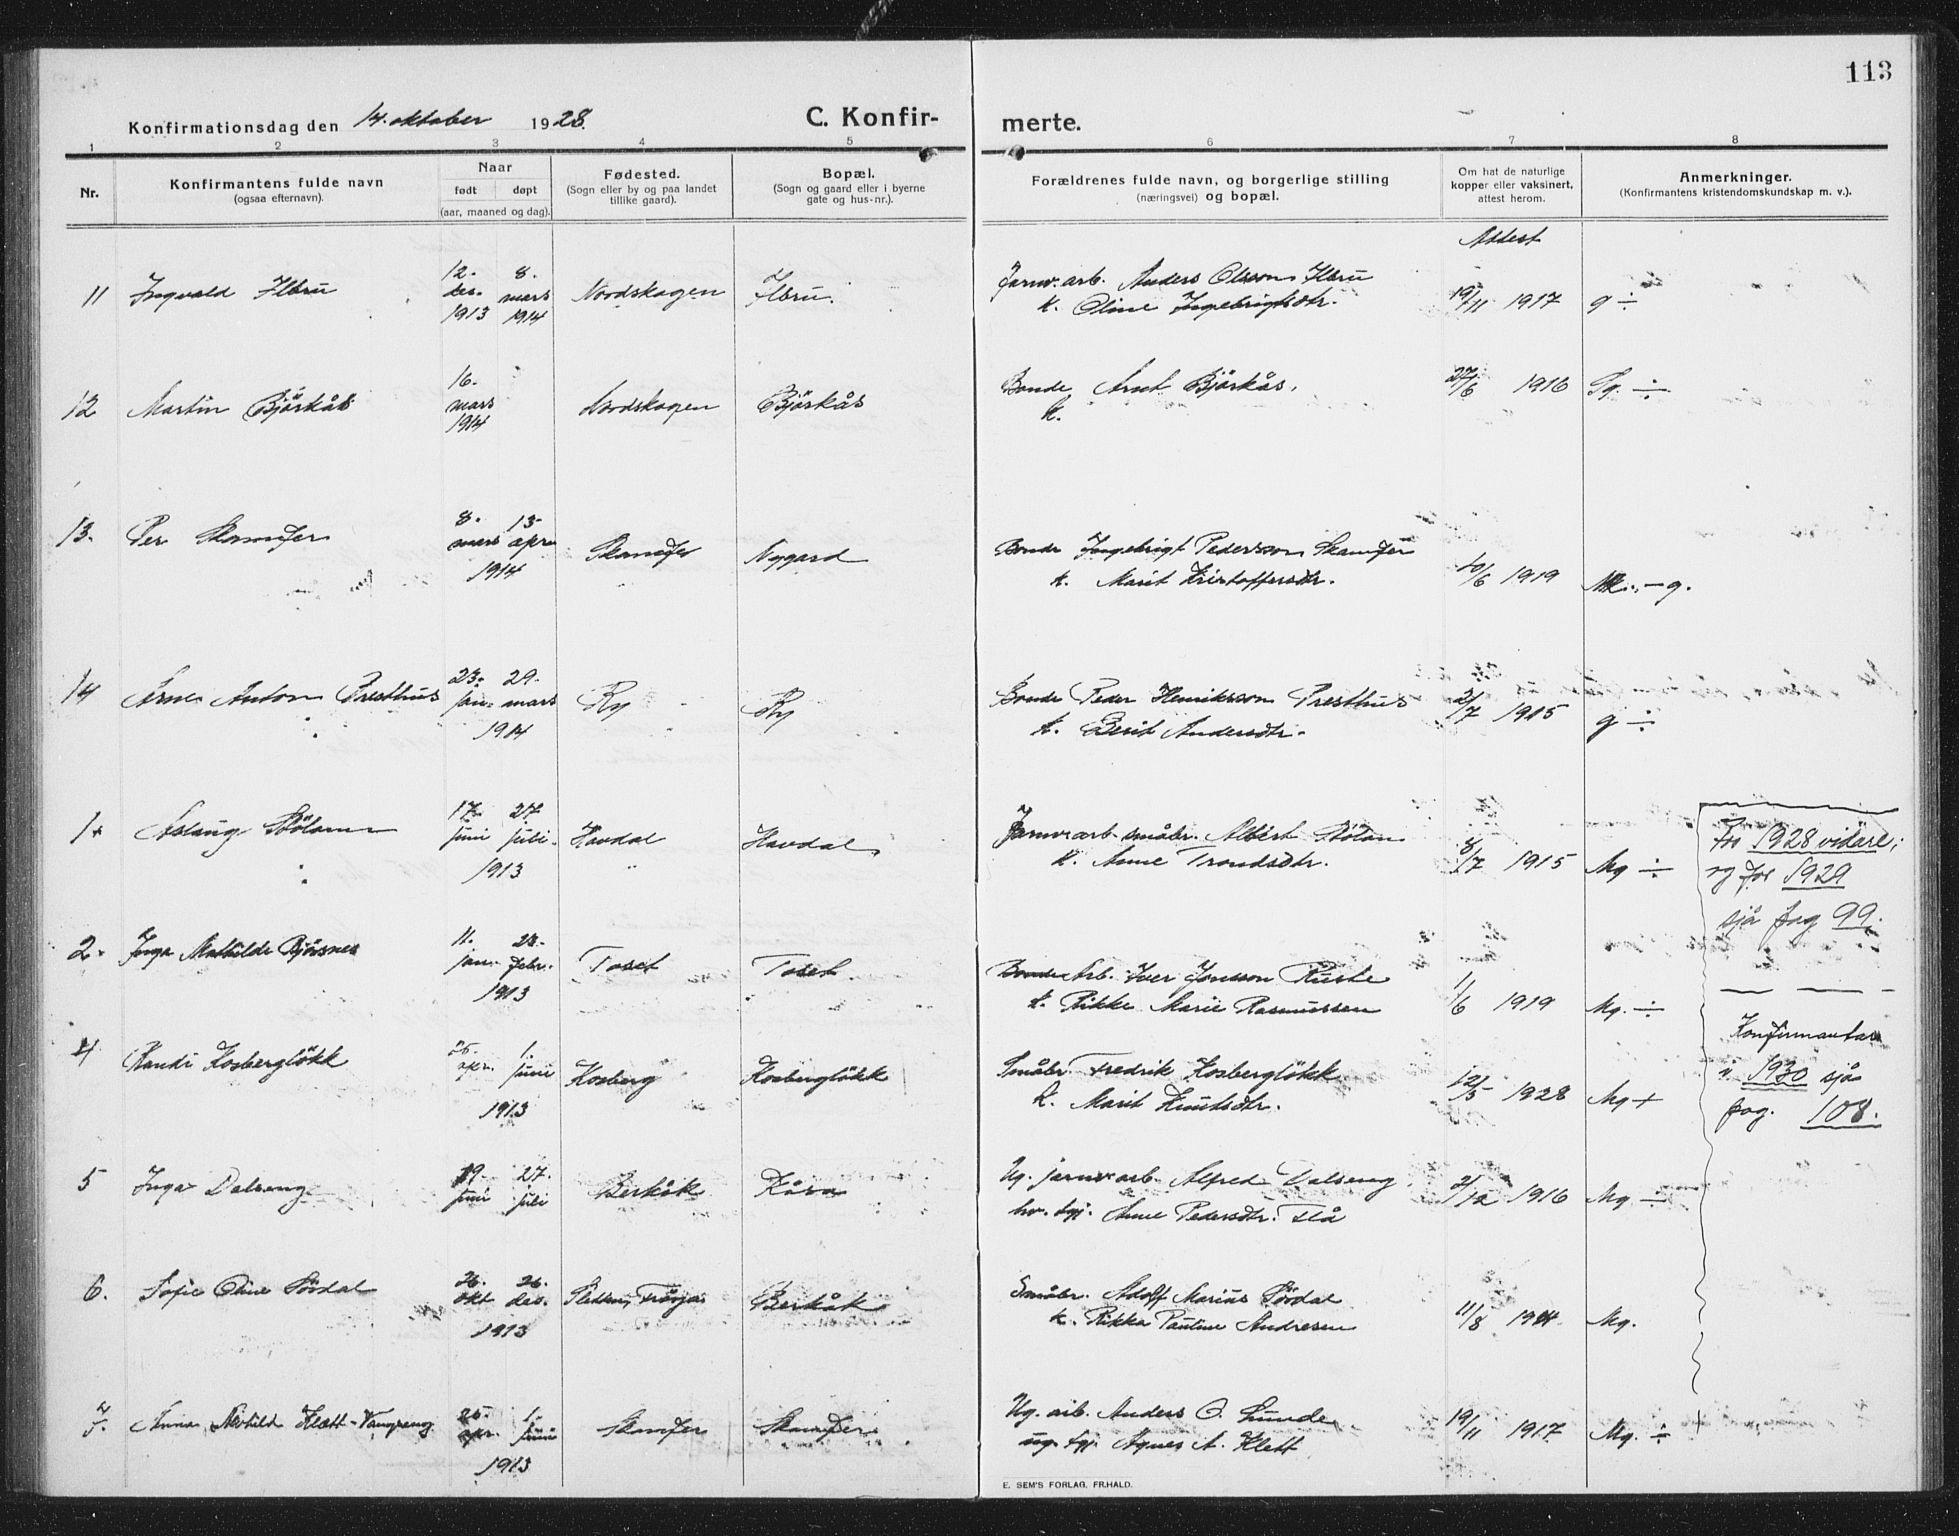 113
Konfirmationsdag den 14. oktober 1928.
C. Konfirmerte.
1 2 3 4 5 6 7 8
Nr.
Konfirmantens fulde navn
(ogsaa efternavn).
Naar
født døpt
(aar, maaned og dag).
Fødested.
(Sogn eller by og paa landet
tillike gaard).
Bopæl.
(Sogn og gaard eller i byerne
gate og hus-nr.).
Forældrenes fulde navn, og borgerlige stilling
(næringsvei) og bopæl.
Om hat de naturlige
kopper eller vaksinert,
attest herom.
Anmerkninger.
(Konfirmantens kristendomskundskap m. v.).
Attest
11 Ingvald Ilbru 12. des. 1913 8. mars 1914 Nordskogen Ilbru. Jarnv. arb. Anders Olsson Ilbru
k. Oline Ingebrigtsdtr. 19/11 1917 g ÷
12 Martin Bjørkås 16. mars 1914 Nordskogen Bjørkås Bonde Arnt Bjørkås.
k. 27/6 1916 Tg. ÷
13. Per Skamfer 8. mars 13. apr. 1914 Skamfer Nygard Bonde Ingebrigt Pedersson Skamfer
k. Marit Kristoffersdtr. 10/6 1919 g.
14 Arne Anton Presthus 23. jan. 29. mars 1914 Ry Ry Bonde Peder Henriksson Presthus
k. Berit Andersdtr. 2/7 1915 g ÷
1 Aslaug Stölan 17. juni 27. juli 1913 Havdal Havdal Jarnv arb. småbr. Albert Stölan
k. Anne Trondsdtr. 8/7 1915 Mg ÷
For 1928 vidare,
og for 1929
sjå pag 99.
2. Inga Mathilde Bjørsnes 11. jan. 23. febr. 1913 Toset Toset. Bonde Arb. Iver Jonsson Ruste
k. Rikke Marie Rasmussen 1/6 1919 Mg. ÷
Konfirmantar
i 1930 sjå
pag. 108.
4 Randi Kosbergløkk 25. apr. 1. juni 1913 Kosberg Kosbergløkk Småbr. Fredrik Kosbergløkk
k. Marit Knutsdtr. 12/5 1928 Mg +
5 Inga Dalseng 19. juni 27. juli Berkåk Kåsa Ug. jarnv arb. Alfred Dalseng
hv. tgj. Anne Pedersdtr. Flå 2/12 1916 Mg ÷
6. Sofie Oline Sördal 26. okt 26. des. 1913 Berkåk Småbr. Adolf Marius Sördal
k. Rikka Pauline Andresen 11/8 1914. Mg.
7. Anna Klett-Vangseng 25. apr. 1. juni 1913 Skamfer Skamfer Ug. arb. Anders O. Lunde
ug. tgj. Agnes A. Klett 19/11 1917 Mg. ÷
E. SEM'S FORLAG, FR.HALD.